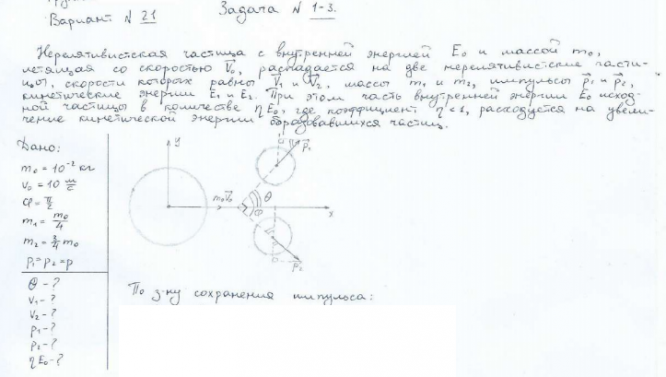 Вариант N 21
Задача N 1-3.
Нерелятивистская частица с внутренней энергией E₀ и массой m₀,
летящая со скоростью V⃗₀, распадается на две нерелятивистские части-
цы, скорости которых равны V⃗₁ и V⃗₂, массы m₁ и m₂, импульсы p⃗₁ и p⃗₂,
кинетические энергии E₁ и E₂. При этом часть внутренней энергии E₀ исход-
ной частицы в количестве ηE₀, где коэффициент η<1, расходуется на увели-
чение кинетической энергии образовавшихся частиц.
Дано:
m₀ = 10⁻² кг
V₀ = 10 м/с
φ = π/2
m₁ = m₀/4
m₂ = 3/4 m₀
p₁ = p₂ = p
θ - ?
V₁ - ?
V₂ - ?
p₁ - ?
p₂ - ?
ηE₀ - ?
y
m₀V⃗₀
θ
φ
x
p⃗₁
p⃗₂
По з-ну сохранения импульса: